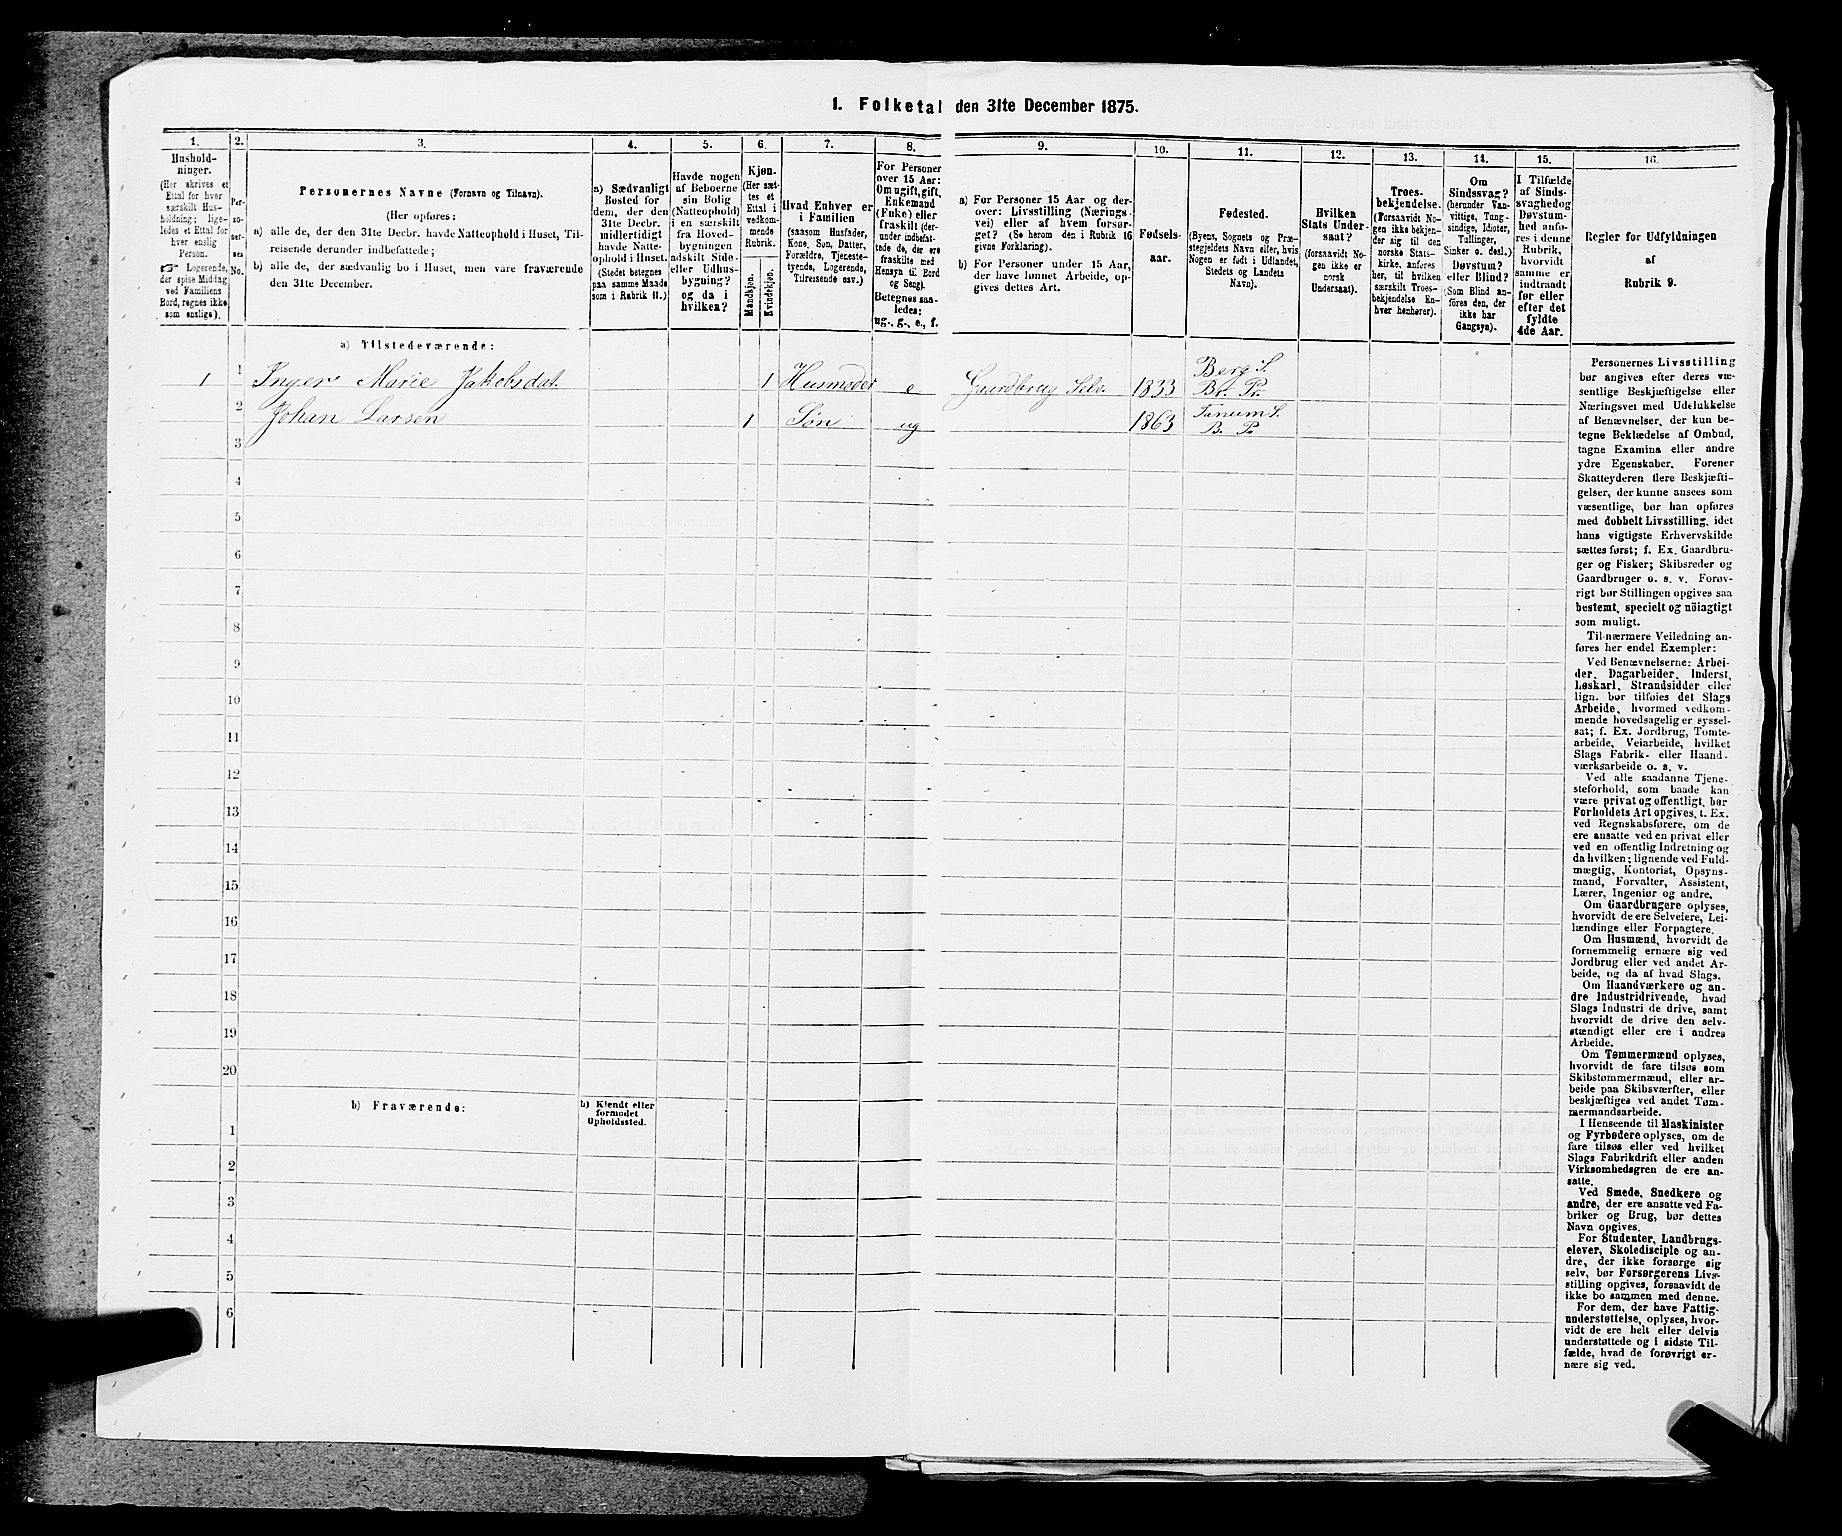 I. Folketal den 31te December 1875.
1.
2.
3.
4.
5.
6.
7.
8.
9.
10.
11.
12.
13.
14.
15.
16.
Hushold-
ninger.
(Her skrives et
Ettal for hver
særskilt Hus-
holdning; lige-
ledes et Ettal for
hver enslig
Person.
☞ Logerende,
der spise Middag
ved Familiens
Bord, regnes ikke
som enslige).
Per-
so-
ner-
nes
No.
Personernes Navne (Fornavn og Tilnavn).
(Her opføres:
a) alle de, der den 31te Decbr. havde Natteophold i Huset, Til-
reisende derunder indbefattede;
b) alle de, der sædvanlig bo i Huset, men vare fraværende
den 31te December.
a) Sædvanligt
Bosted for
dem, der den
31te Decbr.
midlertidigt
havde Natte-
ophold i Huset.
(Stedet betegnes
paa samme Maade
som i Rubrik 11.)
Havde nogen
af Beboerne
sin Bolig
(Natteophold)
i en særskilt
fra Hoved-
bygningen
adskilt Side-
eller Udhus-
bygning?
og da i
hvilken?
Kjøn.
(Her sæt-
tes et
Ettal i
vedkom-
mende
Rubrik.
Mandkjøn.
Kvindekjøn.
Hvad Enhver er
i Familien
(saasom Husfader,
Kone, Søn, Datter,
Forældre, Tjeneste-
tyende, Logerende,
Tilreisende osv.)
For Personer
over 15 Aar:
Om ugift, gift,
Enkemand
(Enke) eller
fraskilt (der-
under indbefat-
tede de, der ere
fraskilte med
Hensyn til Bord
og Seng).
Betegnes saa-
ledes:
ug., g., e., f.
a) For Personer 15 Aar og der-
over: Livsstilling (Nærings-
vei) eller af hvem forsør-
get? (Se herom den i Rubrik 16
givne Forklaring).
b) For Personer under 15 Aar,
der have lønnet Arbeide, op-
gives dettes Art.
Fødsels-
aar.
Fødested.
(Byens, Sognets og Præ-
stegjeldets Navn eller, hvis
Nogen er født i Udlandet,
Stedets og Landets
Navn).
Hvilken
Stats Under-
saat?
(forsaavidt No-
gen ikke er
norsk
Undersaat).
Troes-
bekjendelse.
(Forsaavidt No-
gen ikke bekjen-
der sig til den
norske Stats-
kirke, anføres
her, til hvilken
særskilt Troes-
bekjendelse En-
hver henhører).
Om
Sindssvag?
(herunder Van-
vittige, Tung-
sindige, Idioter,
Tullinger,
Sinker o. desl.).
Døvstum?
eller Blind?
(Som Blind an-
føres den, der
ikke har
Gangsyn).
I Tilfælde
af Sinds-
svaghed og
Døvstum-
hed anfø-
res i denne
Rubrik,
hvorvidt
samme er
indtraadt
før eller
efter det
fyldte
4de Aar.
Regler for Udfyldningen
af
Rubrik 9.
a) Tilstedeværende:
1 1 Inger Marie Jakobsdat. 1 Husmoder e Gaardbrug Selv. 1833 Berg S.
Br. Pr.
2 Johan Larsen 1 Søn ug 1863 Tanum S.
B. Pr.
3
4
5
6
7
8
9
10
11
12
13
14
15
16
17
18
19
20
b) Fraværende:
b) Kjendt eller
formodet
Opholdssted.
1
2
3
4
5
6
Personernes Livsstilling
bør angives efter deres væ-
sentlige Beskjæftigelse eller
Næringsvei med Udelukkelse
af Benævnelser, der kun be-
tegne Beklædelse af Ombud,
tagne Examina eller andre
ydre Egenskaber. Forener
Skatteyderen flere Beskjæfti-
gelser, der kunne ansees som
væsentlige, bør han opføres
med dobbelt Livsstilling, idet
hans vigtigste Erhvervskilde
sættes først; f. Ex. Gaardbru-
ger og Fisker; Skibsreder og
Gaardbruger o. s. v. Forøv-
rigt bør Stillingen opgives saa
bestemt, specielt og nöiagtigt
som muligt.
Til nærmere Veiledning an-
føres her endel Exempler:
Ved Benævnelserne: Arbei-
der, Dagarbeider, Inderst,
Løskarl, Strandsidder eller
lign. bør tilføies det Slags
Arbeide, hvormed vedkom-
mende hovedsagelig er syssel-
sat; f. Ex. Jordbrug, Tomte-
arbeide, Veiarbeide, hvilket
Slags Fabrik- eller Haand-
værksarbeide o. s. v.
Ved alle saadanne Tjene-
steforhold, som baade kan
være privat og offentligt, bør
Forholdets Art opgives, t. Ex.
ved Regnskabsførere, om de
ere ansatte ved en privat eller
ved en offentlig Indretning og
da hvilken; lignende ved Fuld-
mægtig, Kontorist, Opsyns-
mand, Forvalter, Assistent,
Lærer, Ingeniør og andre.
Om Gaardbrugere oplyses,
hvorvidt de ere Selveiere, Lei-
lændinge eller Forpagtere.
Om Husmænd, hvorvidt de
fornemmelig ernære sig ved
Jordbrug eller ved andet Ar-
beide, og da af hvad Slags.
Om Haandværkere og an-
dre Industridrivende, hvad
Slags Industri de drive, samt
hvorvidt de drive den selv-
stændigt eller ere i andres
Arbeide.
Om Tømmermænd oplyses,
hvorvidt de fare tilsøs som
Skibstømmermænd, eller ar-
beide paa Skibsværfter, eller
beskjæftiges ved andet Tøm-
mermandsarbeide.
I Henseende til Maskinister
og Fyrbødere oplyses, om de
fare tilsøs eller ved hvilket
Slags Fabrikdrift eller anden
Virksomhedsgren de ere an-
satte.
Ved Smede, Snedkere og
andre, der ere ansatte ved Fa-
briker og Brug, bør dettes
Navn opgives.
For Studenter, Landbrugs-
elever, Skoledisciple og an-
dre, der ikke forsørge sig
selv, bør Forsørgerens Livs-
stilling opgives, forsaavidt de
ikke bo sammen med denne.
For dem, der have Fattig-
understøttelse, oplyses, hvor-
vidt de ere helt eller delvis
understøttede og i sidste Til-
fælde, hvad de forøvrigt er-
nære sig ved.